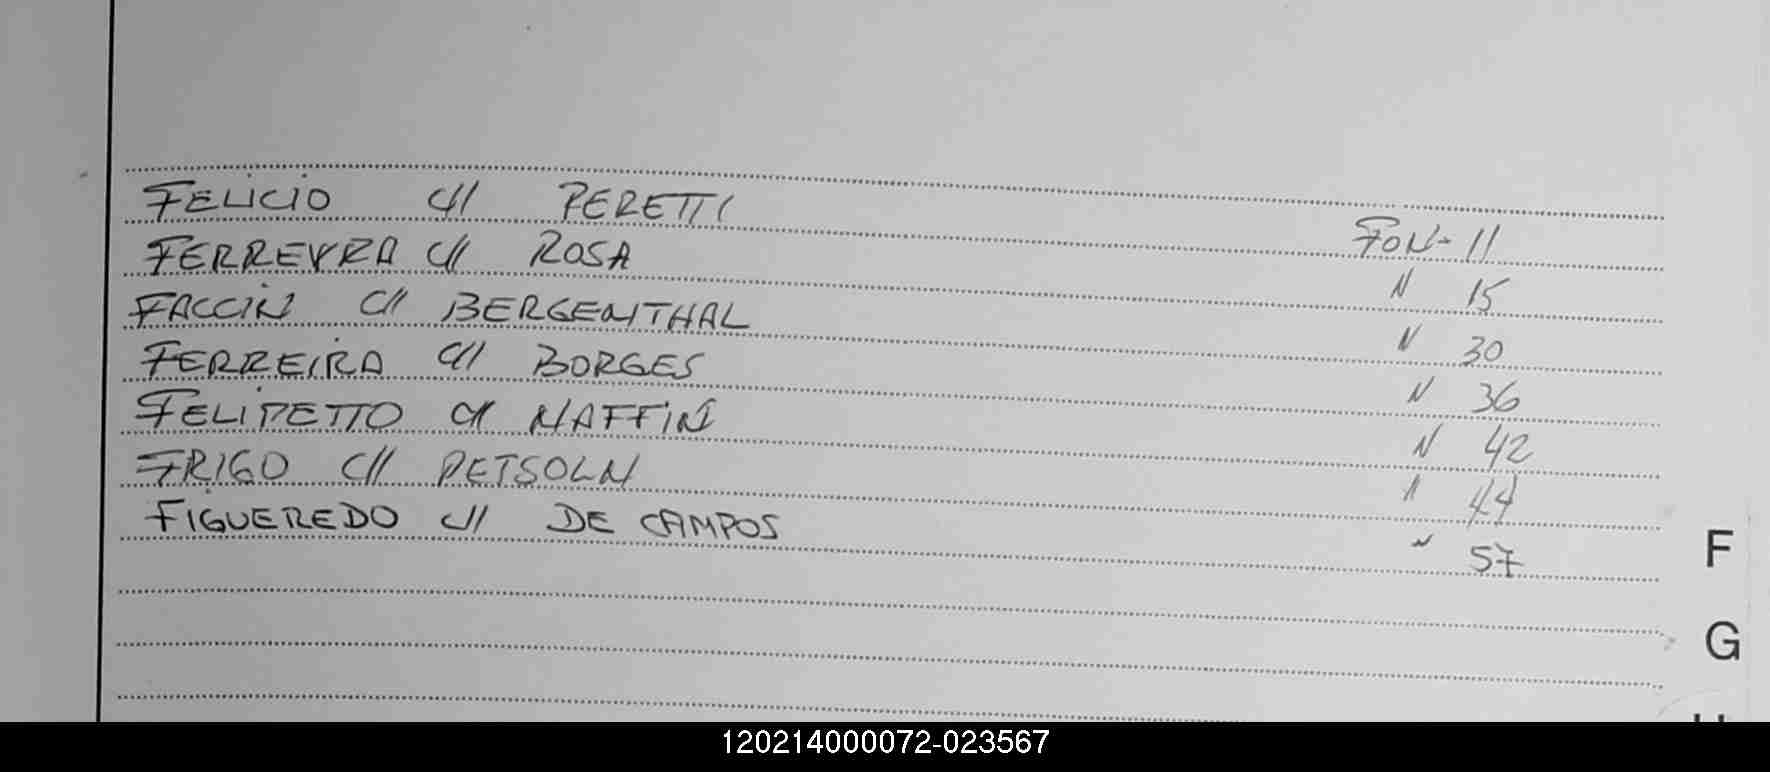 FELICIO c// PERETTI FON- 11
FERREYRA c// ROSA " 15
FACCIN c// BERGENTHAL " 30
FERREIRA c// BORGES " 36
FELIPETTO c// NAFFIN " 42
FRIGO c// PETSOLN " 44
FIGUEREDO c// DE CAMPOS " 57
F
G
120214000072-023567